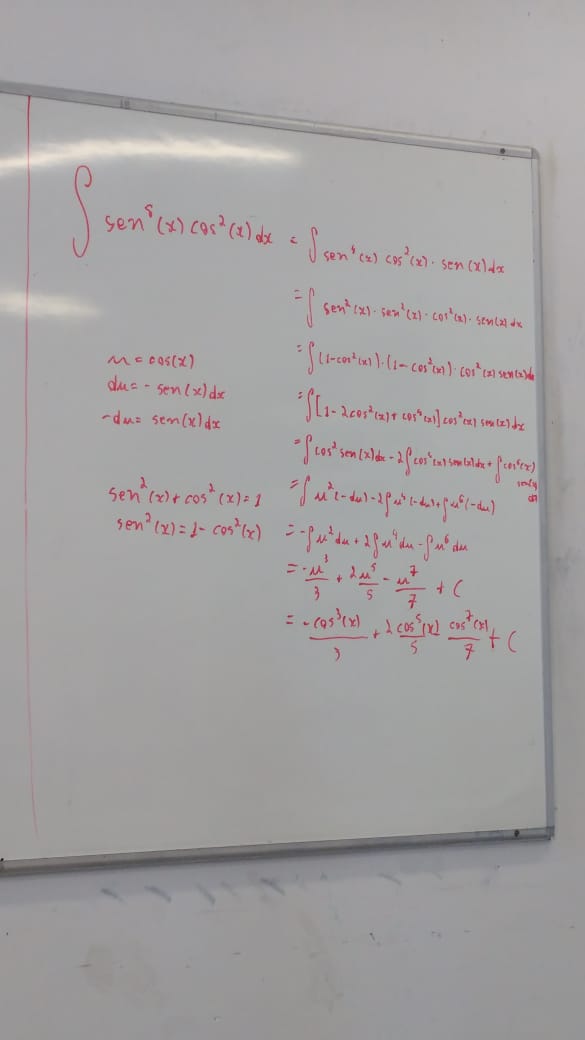 ∫ sen⁵(x) cos²(x) dx = ∫ sen⁴(x) cos²(x) · sen(x) dx
= ∫ sen²(x) · sen²(x) · cos²(x) · sen(x) dx
= ∫ (1-cos²(x)) · (1-cos²(x)) · cos²(x) sen(x) dx
= ∫ [1 - 2cos²(x) + cos⁴(x)] cos²(x) sen(x) dx
= ∫ cos² sen(x) dx - 2 ∫ cos⁴(x) sen(x) dx + ∫ cos⁶(x) sen(x) dx
= ∫ u²(-du) - 2 ∫ u⁴(-du) + ∫ u⁶(-du)
= -∫ u² du + 2 ∫ u⁴ du - ∫ u⁶ du
= -u³/3 + 2u⁵/5 - u⁷/7 + C
= -cos³(x)/3 + 2 cos⁵(x)/5 cos⁷(x)/7 + C
u = cos(x)
du = - sen(x) dx
-du = sen(x) dx
sen²(x) + cos²(x) = 1
sen²(x) = 1 - cos²(x)